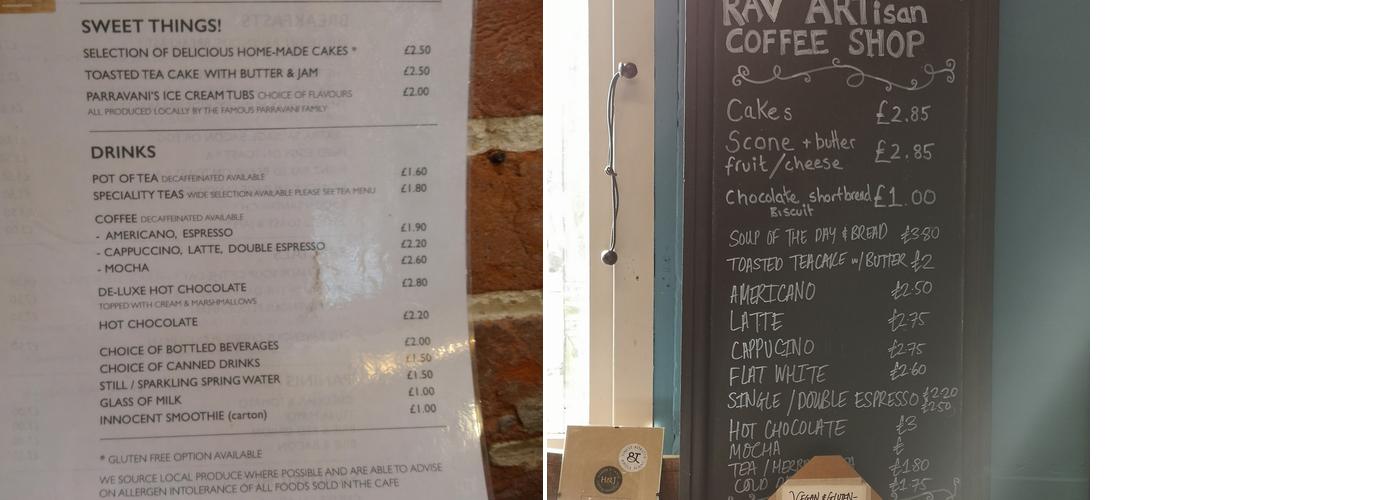 SWEET THINGS!
SELECTION OF DELICIOUS HOME-MADE CAKES * £2.50
TOASTED TEA CAKE WITH BUTTER & JAM £2.50
PARRAVANI'S ICE CREAM TUBS CHOICE OF FLAVOURS £2.00
ALL PRODUCED LOCALLY BY THE FAMOUS PARRAVANI FAMILY
DRINKS
POT OF TEA DECAFFEINATED AVAILABLE £1.60
SPECIALITY TEAS WIDE SELECTION AVAILABLE PLEASE SEE TEA MENU £1.80
COFFEE DECAFFEINATED AVAILABLE
- AMERICANO, ESPRESSO £1.90
- CAPPUCCINO, LATTE, DOUBLE ESPRESSO £2.20
- MOCHA £2.60
DE-LUXE HOT CHOCOLATE £2.80
TOPPED WITH CREAM & MARSHMALLOWS
HOT CHOCOLATE £2.20
CHOICE OF BOTTLED BEVERAGES £2.00
CHOICE OF CANNED DRINKS £1.50
STILL / SPARKLING SPRING WATER £1.50
GLASS OF MILK £1.00
INNOCENT SMOOTHIE (carton) £1.00
* GLUTEN FREE OPTION AVAILABLE
WE SOURCE LOCAL PRODUCE WHERE POSSIBLE AND ARE ABLE TO ADVISE
ON ALLERGEN INTOLERANCE OF ALL FOODS SOLD IN THE CAFE
RAV ARTisan
COFFEE SHOP
Cakes £2.85
Scone + butter
fruit/cheese £2.85
Chocolate shortbread £1.00
Biscuit
SOUP OF THE DAY & BREAD £3.80
TOASTED TEACAKE w/BUTTER £2
AMERICANO £2.50
LATTE £2.75
CAPPUCINO £2.75
FLAT WHITE £2.60
SINGLE / DOUBLE ESPRESSO £2.20
£2.50
HOT CHOCOLATE £3
MOCHA £
TEA / £1.80
COLD £1.75
H&J
VEGAN & GLUTEN-